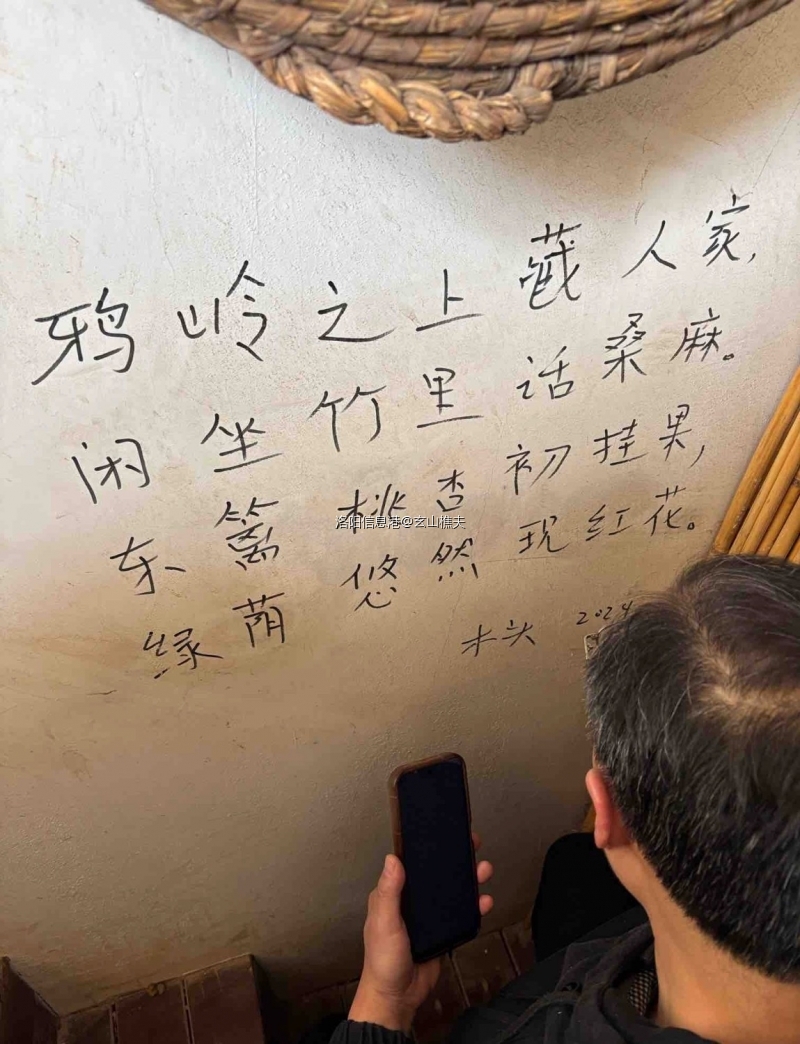 鸦岭之上藏人家,
闲坐竹里话桑麻。
东篱桃杏初挂果,
绿荫悠然现红花。
木头 2024
洛阳信息港@玄山樵夫